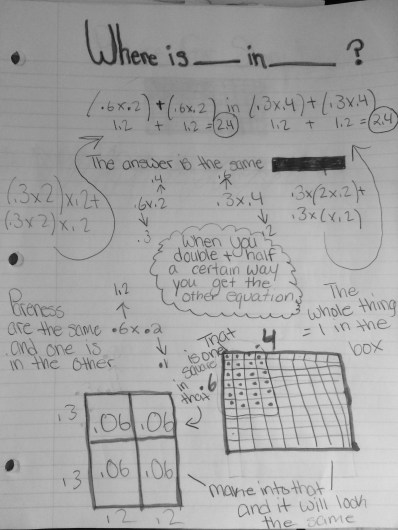 Where is ___ in ___?
(.6x.2) + (.6x.2) in (.3x.4) + (.3x.4)
1.2 + 1.2 = 2.4
1.2 + 1.2 = 2.4
The answer is the same
(.3x2)x.2+
(.3x2)x.2
.4
.6x.2
.3
.6
.3x.4
.2
.3x(2x.2)+
.3x(x.2)
When you
double + half
a certain way
you get the
other equation
1.2
are the same
and one is
in the other
.6x.2
.1
The
whole thing
= 1 in the
box
That
is one
square
in
that
.4
.6
.3
.3
.06 .06
.06 .06
.2 .2
make into that
and it will look
the same